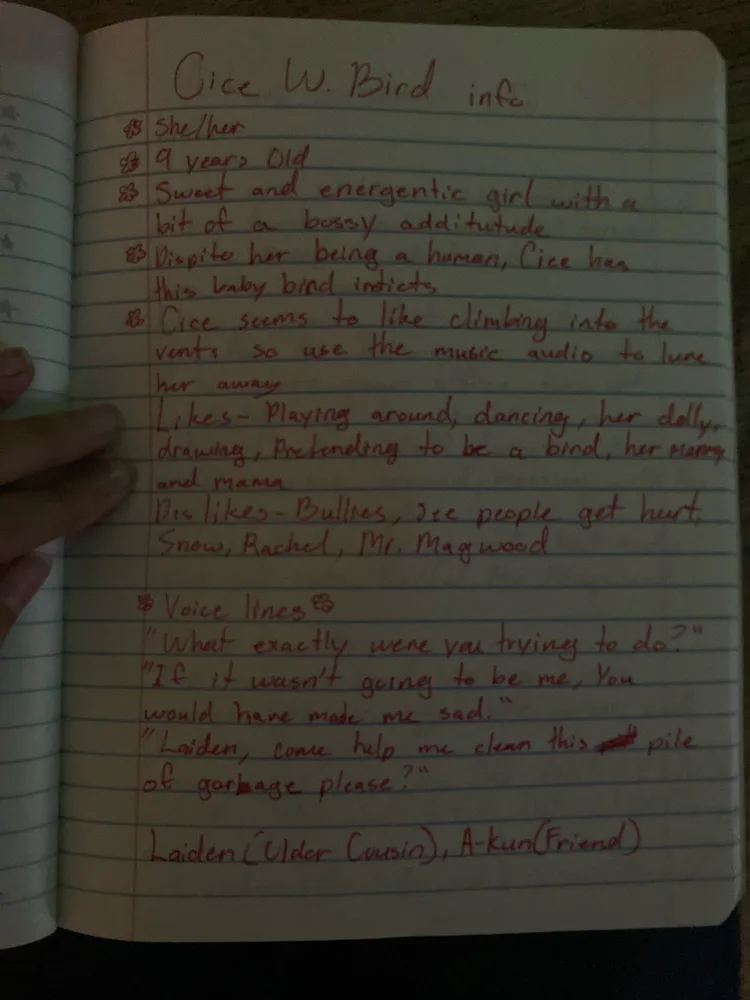 Cice W. Bird info
She/her
9 years Old
Sweet and energentic girl with a
bit of a bossy additutude
Dispite her being a human, Cice has
this baby bird inticts
Cice seems to like climbing into the
vents so use the music audio to lure
her away
Likes- Playing around, dancing, her dolly,
drawing, Pretending to be a bird, her
and mama
Dislikes- Bullies, see people get hurt,
Snow, Rachel, Mr. Magwood
Voice lines
"What exactly were you trying to do?"
"If it wasn't going to be me, You
would have made me sad."
"Laiden, come help me clean this pile
of garbage please?"
Laiden (Older Cousin), A-kun (Friend)